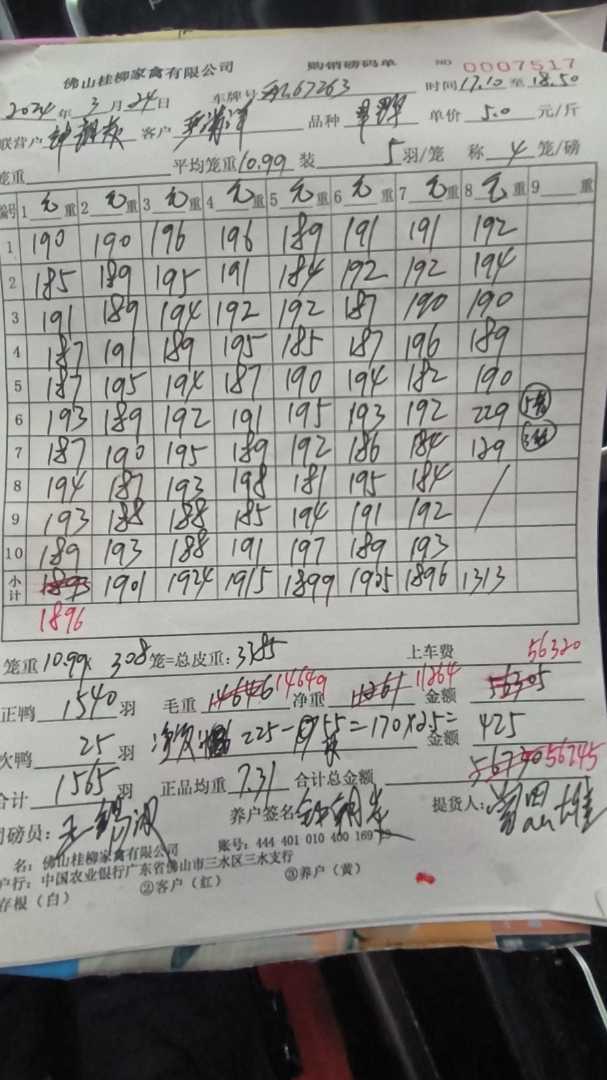 佛山桂柳家禽有限公司 购销磅码单 NO 0007517
2024年3月24日 车牌号 67263 时间17.10至18.50
联营户 客户 品种 单价 5.0 元/斤
笼重 平均笼重10.99 装 5羽/笼 称 4 笼/磅
编号 1 毛重 2 毛重 3 毛重 4 毛重 5 毛重 6 毛重 7 毛重 8 毛重 9 重
1 190 190 196 196 189 191 191 192
2 185 189 195 191 184 192 192 194
3 191 189 194 192 192 187 190 190
4 187 191 189 195 185 187 196 189
5 187 195 194 187 190 194 182 190
6 193 189 192 191 195 193 192 229 5笼
7 187 190 195 189 192 186 184 129 3笼
8 194 187 193 198 181 195 184
9 193 188 188 185 194 191 192
10 189 193 188 191 197 189 193
小计 1893 1901 1924 1915 1899 1905 1896 1313
1896
笼重 10.99× 308笼=总皮重:3385 上车费 56320
正鸭 1540 羽 毛重 14646 14649 净重 11261 11264 金额 56305
次鸭 25 羽 225-55=170×2.5= 金额 425
合计 1565 羽 正品均重 7.31 合计总金额 56730 56745
司磅员: 养户签名 提货人:
名:佛山桂柳家禽有限公司 账号:444 401 010 400 169
户行:中国农业银行广东省佛山市三水区三水支行
存根(白) ②客户(红) ③养户(黄)